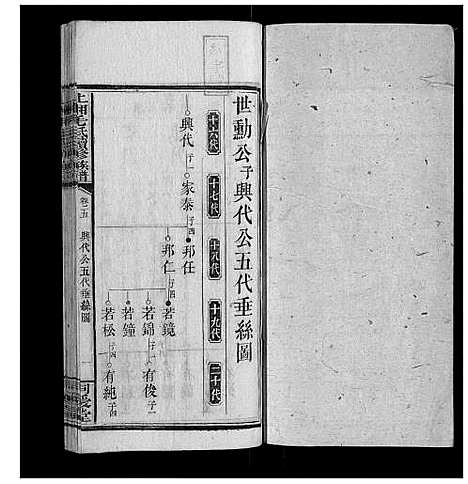 世勳公子興代公五代垂絲圖
十六代
十七代
十八代
十九代
二十代
興代子一
家泰子四
邦任
邦仁子四
若鏡
若錦子一
若鐘
若松子四
有俊子一
有純子四
上湘毛氏續修族譜
卷五
興代公五代垂絲圖
一